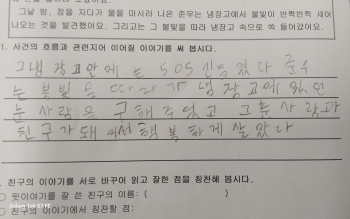 그날 밤, 잠을 자다가 물을 마시러 나온 준우는 냉장고에서 불빛이 반짝반짝 새어
나오는 것을 발견했어요. 그리고는 그 불빛을 따라 냉장고 속으로 쏙 들어갔어요.
1. 사건의 흐름과 관련지어 이어질 이야기를 써 봅시다.
그냉장고안에는 SOS 신호 였다 준우
는 불빛을 따라가 냉장고에 있던
눈사람은 구해주었고 그 눈사람과
친구가돼에서 행복하게 살았다
. 친구의 이야기를 서로 바꾸어 읽고 잘한 점을 칭찬해 봅시다.
○ 뒷이야기를 잘 쓴 친구의 이름: ( )
○ 친구의 이야기에서 칭찬할 점:
Galaxy Tab S7 FE